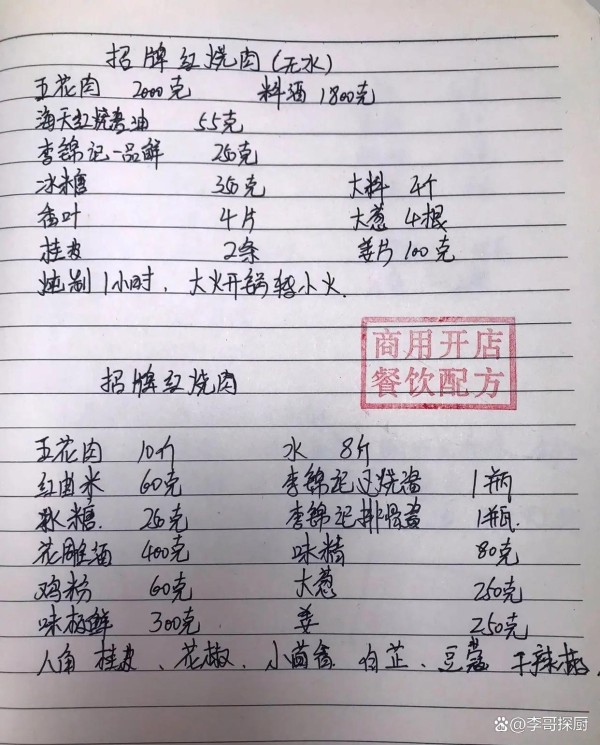 招牌红烧肉(无水)
五花肉 2000克 料酒 1800克
海天红烧老抽油 55克
李锦记一品鲜 260克
冰糖 360克 大料 4个
香叶 4片 大葱 4根
桂皮 2条 姜片 100克
炖制1小时、大火开锅转小火.
商用开店
餐饮配方
招牌红烧肉
五花肉 10斤 水 8斤
红曲米 60克 李锦记叉烧酱 1瓶
冰糖 260克 李锦记排骨酱 1瓶.
花雕酒 400克 味精 80克
鸡粉 60克 大葱 250克
味极鲜 300克 姜 250克
八角 桂皮、花椒、小茴香 白芷、豆蔻 干辣椒、
@李哥探厨